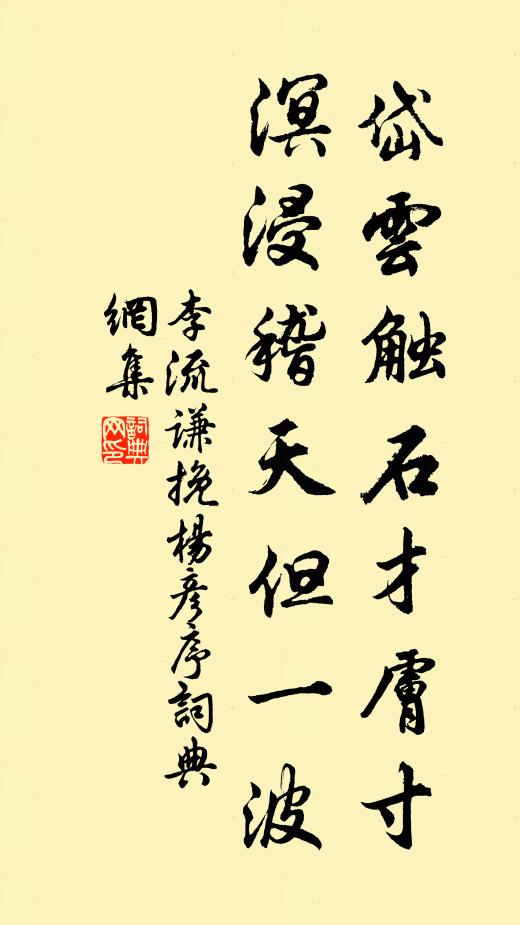 岱雲触石才膚寸
溟浸稽天但一波
李流谦挽楊彦序詞典
網集
詞典网印